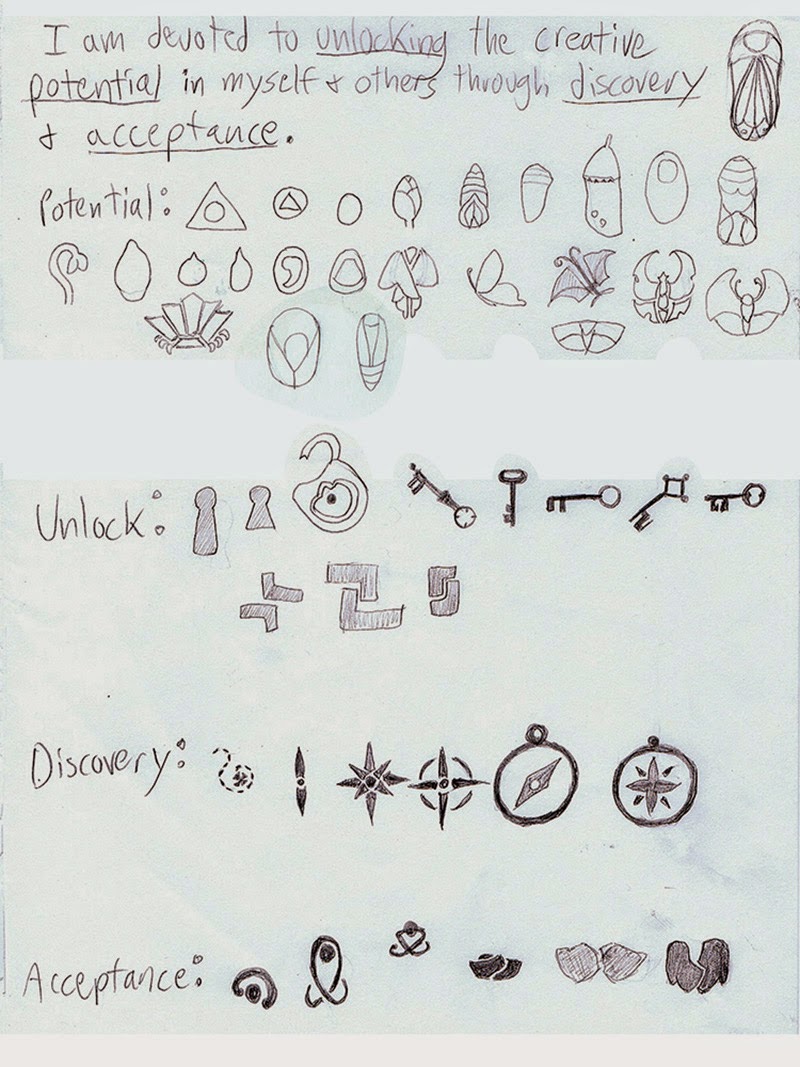 I am devoted to unlocking the creative
potential in myself & others through discovery
& acceptance.
Potential:
Unlock:
Discovery:
Acceptance: